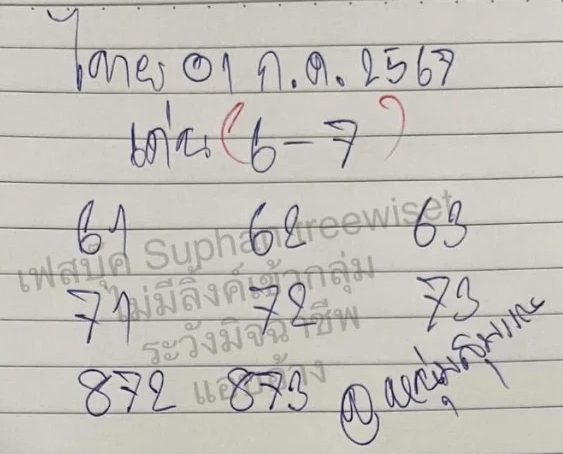 ไทย 01 ก.ค. 2567
เด่น (6-7)
61 62 63
เฟสบุ๊ค Suphan treewiset
ไม่มีลิ้งค์เข้ากลุ่ม
71 72 73
ระวังมิจฉาชีพ
แอบอ้าง
872 873